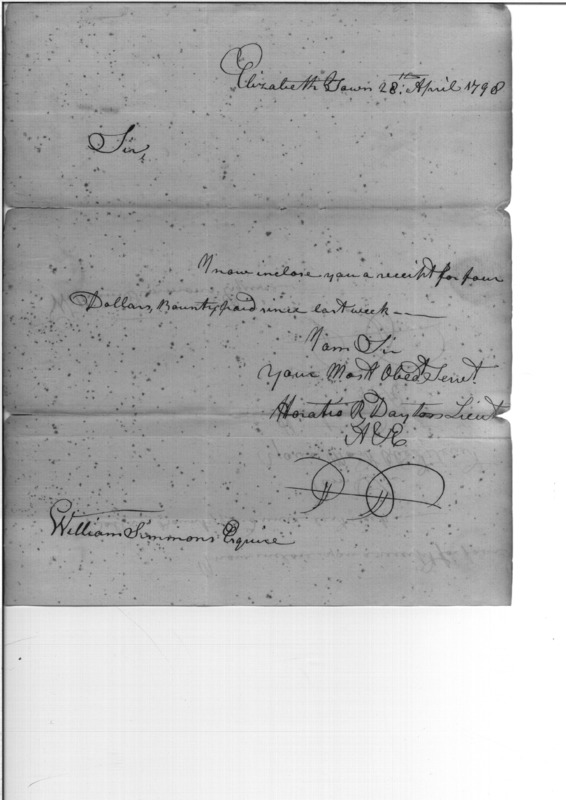 Elizabeth Town 28th April 1798
Sir,
I now inclose you a receipt for four
Dollars, Bounty paid since last week —
I am Sir
Your Most Obedt Servt.
Horatio R Dayton Lieut
A & E
William Simmons Esquire